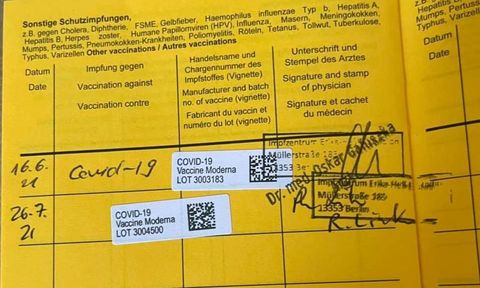 Sonstige Schutzimpfungen,
z.B. gegen Cholera, Diphtherie, FSME, Gelbfieber, Haemophilus influenzae Typ b, Hepatitis A,
Hepatitis B, Herpes zoster, Humane Papillomviren (HPV), Influenza, Masern, Meningokokken,
Mumps, Pertussis, Pneumokokken-Krankheiten, Poliomyelitis, Röteln, Tetanus, Tollwut, Tuberkulose,
Typhus, Varizellen Other vaccinations / Autres vaccinations
Datum
Date
Impfung gegen
Vaccination against
Vaccination contre
Handelsname und
Chargennummer des
Impfstoffes (Vignette)
Manufacturer and batch
no. of vaccine (vignette)
Fabricant du vaccin et
numéro du lot (vignette)
Unterschrift und
Stempel des Arztes
Signature and stamp
of physician
Signature et cachet
du médecin
16.6.
21
Covid-19
COVID-19
Vaccine Moderna
LOT 3003183
Impfzentrum
Müllerstraße
13353 Berlin
Dr. med. Oskar
26.7.
21
COVID-19
Vaccine Moderna
LOT 3004500
Impfzentrum Erika-Heß-
Müllerstraße
13353 Berlin